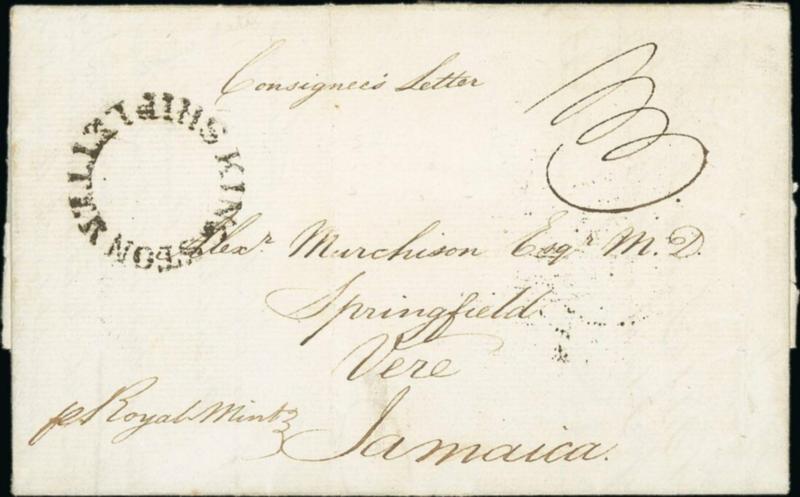 Consignee's Letter
KINGSTON SHIP LETTER
Alexr. Murchison Esqr. M.D.
Springfield
Vere
Jamaica.
p Royal Mint